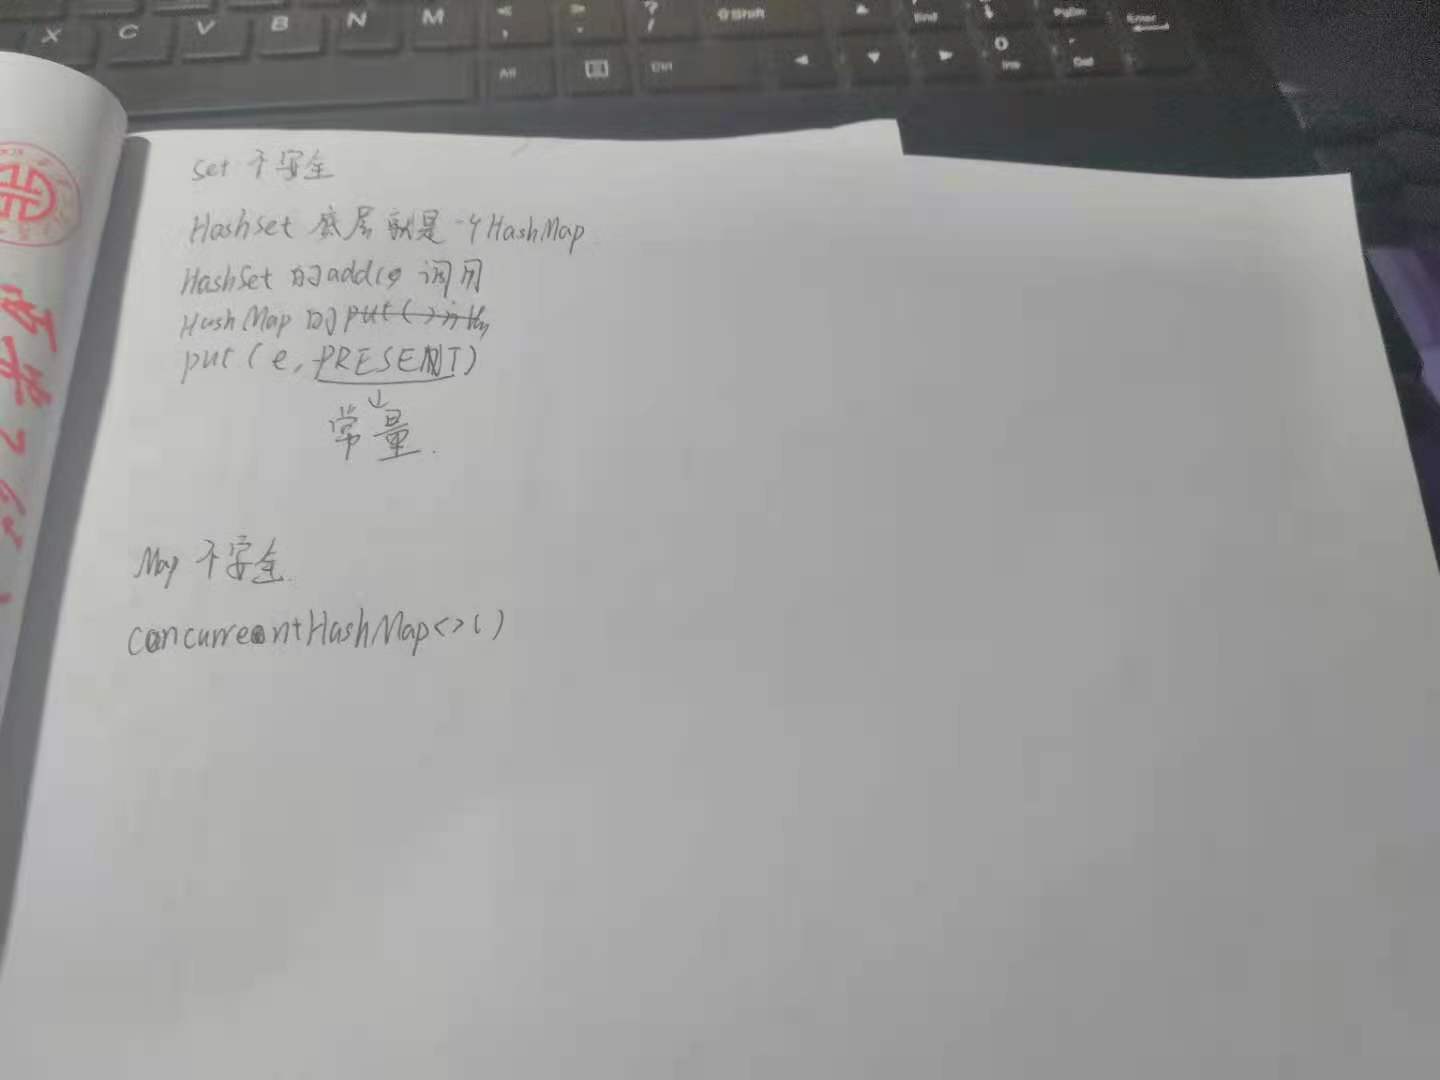 X C V B N M < , > . ? / ⇧Shift End PgDn Enter
Alt Ctrl 0 Ins . Del
Set 不安全
HashSet 底层就是一个HashMap
HashSet 的add()调用
HashMap 的put()方法
put(e, PRESENT)
↓
常量.
Map 不安全.
ConcurrentHashMap<>()